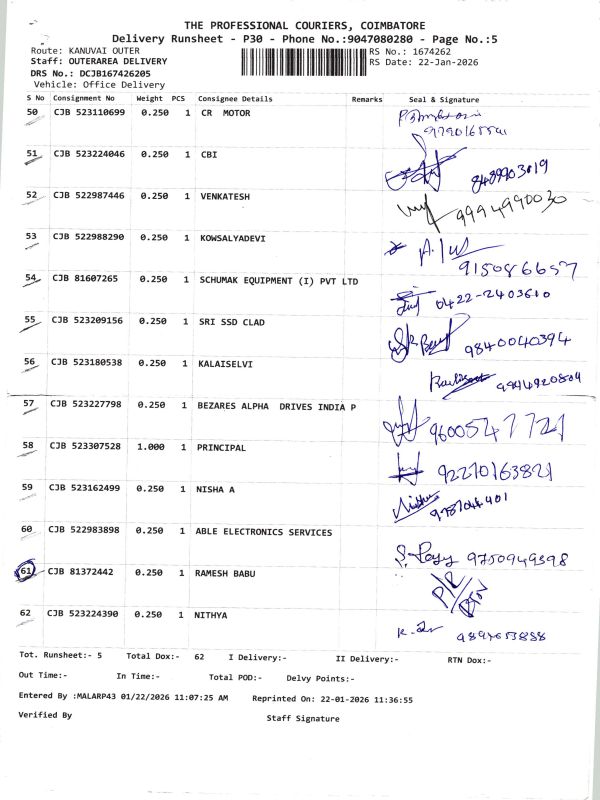 THE PROFESSIONAL COURIERS, COIMBATORE
Delivery Runsheet - P30 - Phone No.:9047080280 - Page No.:5
Route: KANUVAI OUTER RS No.: 1674262
Staff: OUTERAREA DELIVERY RS Date: 22-Jan-2026
DRS No.: DCJB167426205
Vehicle: Office Delivery
S No Consignment No Weight PCS Consignee Details Remarks Seal & Signature
50 CJB 523110699 0.250 1 CR MOTOR
51 CJB 523224046 0.250 1 CBI
8489903019
52 CJB 522987446 0.250 1 VENKATESH
9994990030
53 CJB 522988290 0.250 1 KOWSALYADEVI
915086657
54 CJB 81607265 0.250 1 SCHUMAK EQUIPMENT (I) PVT LTD
0422-2403610
55 CJB 523209156 0.250 1 SRI SSD CLAD
9840040394
56 CJB 523180538 0.250 1 KALAISELVI
9944920804
57 CJB 523227798 0.250 1 BEZARES ALPHA DRIVES INDIA P
9600547721
58 CJB 523307528 1.000 1 PRINCIPAL
92210163821
59 CJB 523162499 0.250 1 NISHA A
60 CJB 522983898 0.250 1 ABLE ELECTRONICS SERVICES
9750949398
61 CJB 81372442 0.250 1 RAMESH BABU
62 CJB 523224390 0.250 1 NITHYA
Tot. Runsheet:- 5 Total Dox:- 62 I Delivery:- II Delivery:- RTN Dox:-
Out Time:- In Time:- Total POD:- Delvy Points:-
Entered By :MALARP43 01/22/2026 11:07:25 AM Reprinted On: 22-01-2026 11:36:55
Verified By Staff Signature